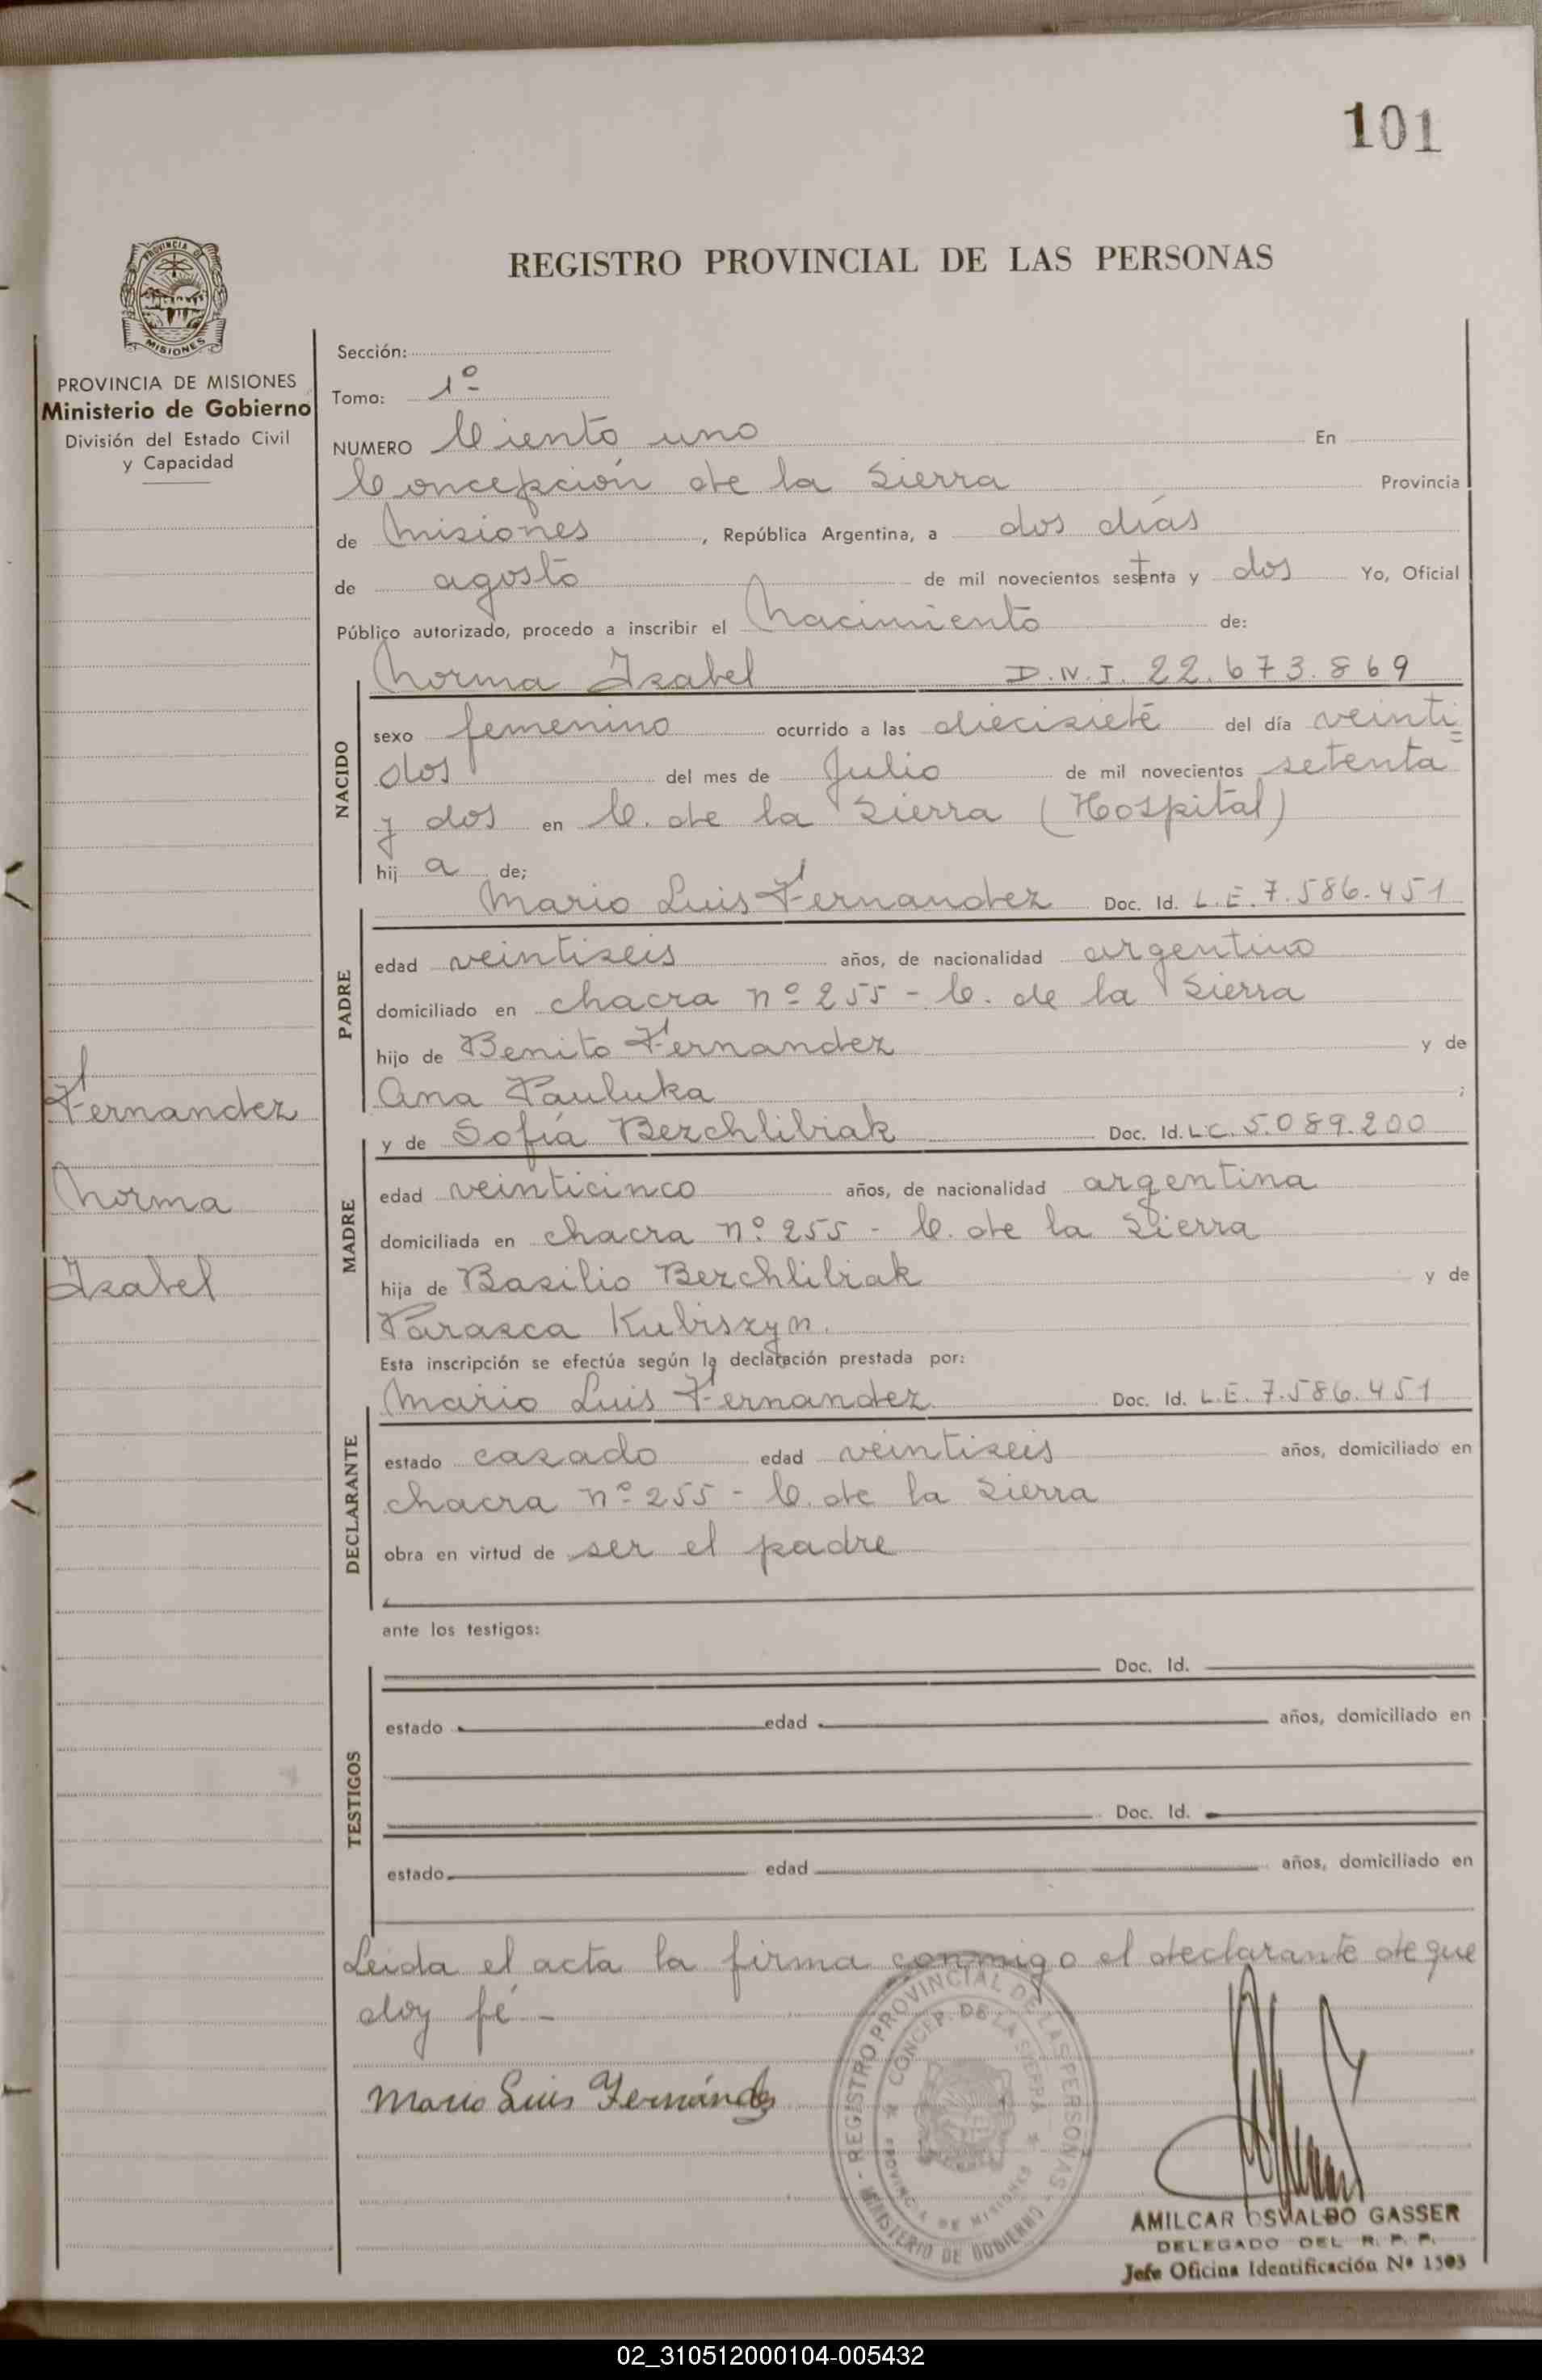 101
REGISTRO PROVINCIAL DE LAS PERSONAS
PROVINCIA DE MISIONES
Ministerio de Gobierno
División del Estado Civil
y Capacidad
Sección:
Tomo: 1º
NUMERO Ciento uno En
Concepción de la Sierra Provincia
de Misiones, República Argentina, a dos días
de agosto de mil novecientos setenta y dos Yo, Oficial
Público autorizado, procedo a inscribir el Nacimiento de:
Norma Isabel D.N.I. 22.673.869
NACIDO
sexo femenino ocurrido a las diecisiete del día veinti=
dos del mes de Julio de mil novecientos setenta
y dos en C. de la Sierra (Hospital)
hij a de;
Mario Luis Fernandez Doc. Id. L.E. 7.586.451
PADRE
edad veintiseis años, de nacionalidad argentino
domiciliado en chacra nº 255 - C. de la Sierra
hijo de Benito Fernandez y de
Ana Pauluka ;
y de Sofía Bezchlibiak Doc. Id. L.C. 5.089.200
MADRE
edad veinticinco años, de nacionalidad argentina
domiciliada en chacra nº 255 - C. de la Sierra
hija de Basilio Bezchlibiak y de
Parasca Kubiszyn.
Esta inscripción se efectúa según la declaración prestada por:
Mario Luis Fernandez Doc. Id. L.E. 7.586.451
DECLARANTE
estado casado edad veintiseis años, domiciliado en
chacra nº 255 - C. de la Sierra
obra en virtud de ser el padre
ante los testigos:
Doc. Id.
TESTIGOS
estado edad años, domiciliado en
Doc. Id.
estado edad años, domiciliado en
Leida el acta la firma conmigo el declarante de que
doy fé -
Mario Luis Fernández
Fernandez
Norma
Isabel
REGISTRO PROVINCIAL DE LAS PERSONAS
MINISTERIO DE GOBIERNO
CONCEP. DE LA SIERRA
PROVINCIA DE MISIONES
AMILCAR OSVALDO GASSER
DELEGADO DEL R. P. P.
Jefe Oficina Identificación Nº 1503
02_310512000104-005432